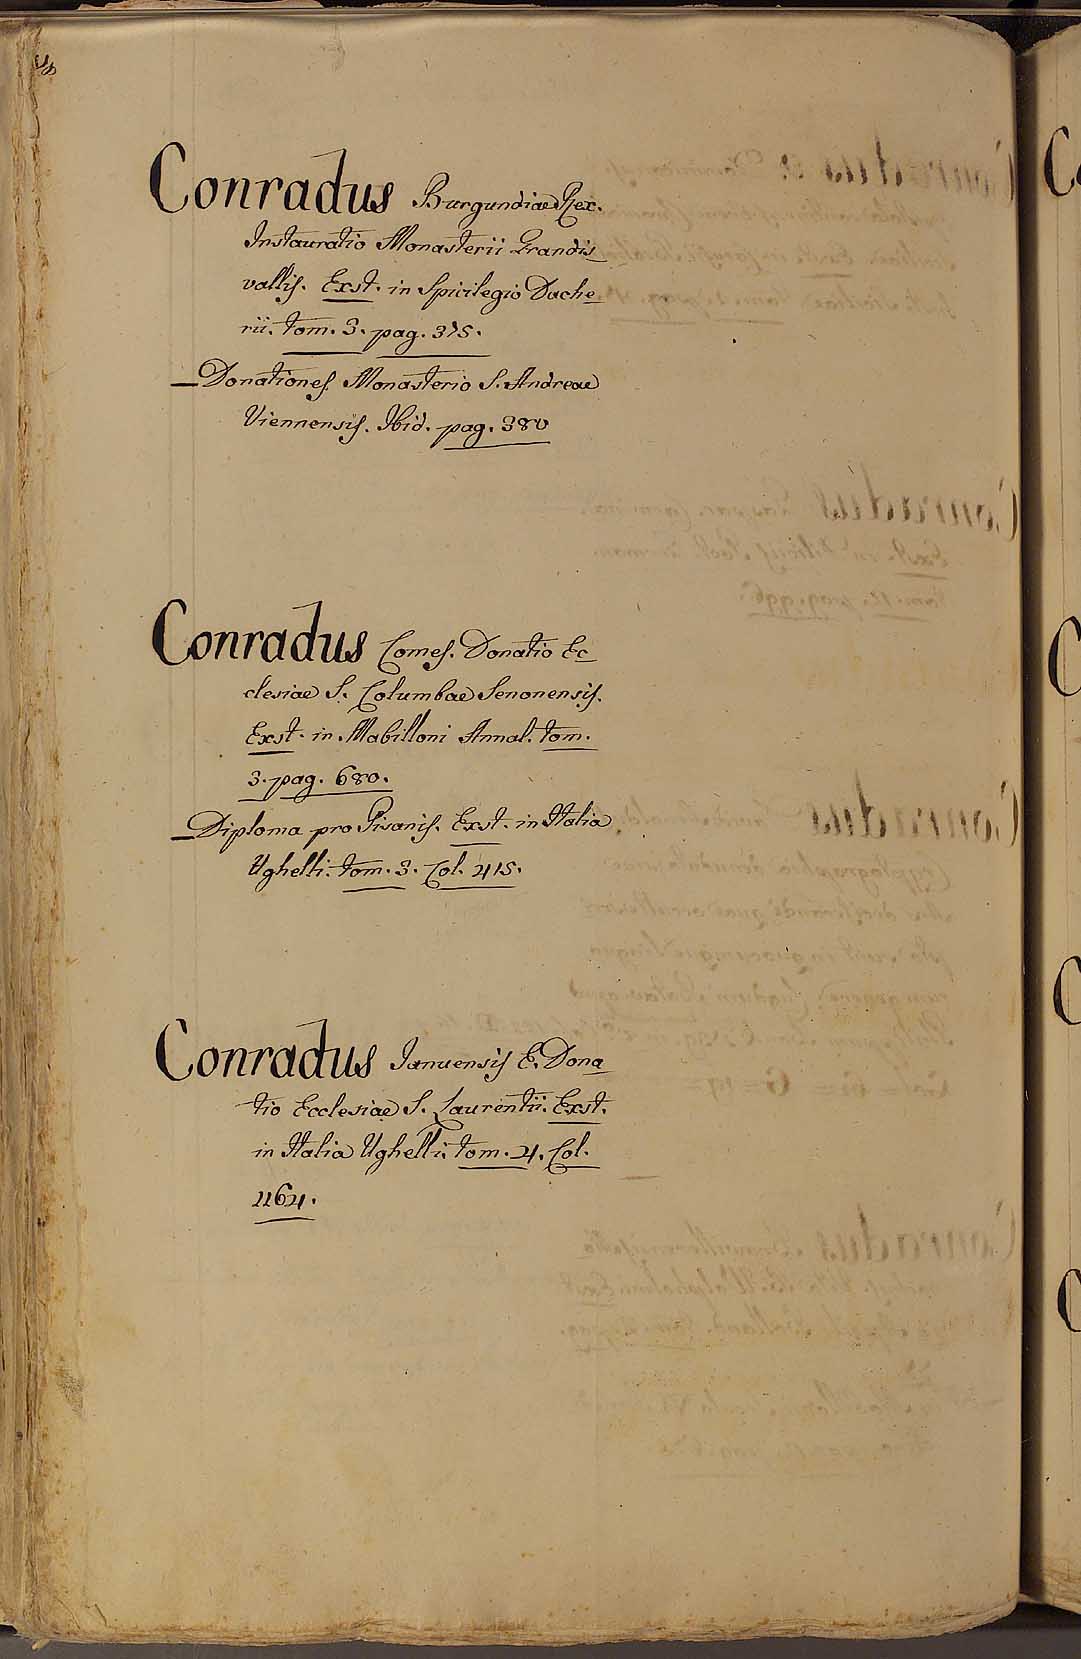 Conradus Burgundiae Rex.
Instauratio Monasterii Grandis
vallis. Exst. in Spicilegio Dache
rii. tom. 3. pag. 375.
Donationes Monasterio S. Andreae
Viennensis. Ibid. pag. 380
Conradus Comes. Donatio Ec
clesiae S. Columbae Senonensis.
Exst. in Mabilloni Annal. tom.
3. pag. 680.
Diploma pro Pisanis. Exst. in Italia
Ughelli. tom. 3. Col. 415.
Conradus Januensis E. Dona
tio Ecclesiae S. Laurentii. Exst.
in Italia Ughelli. tom. 4. Col.
1164.